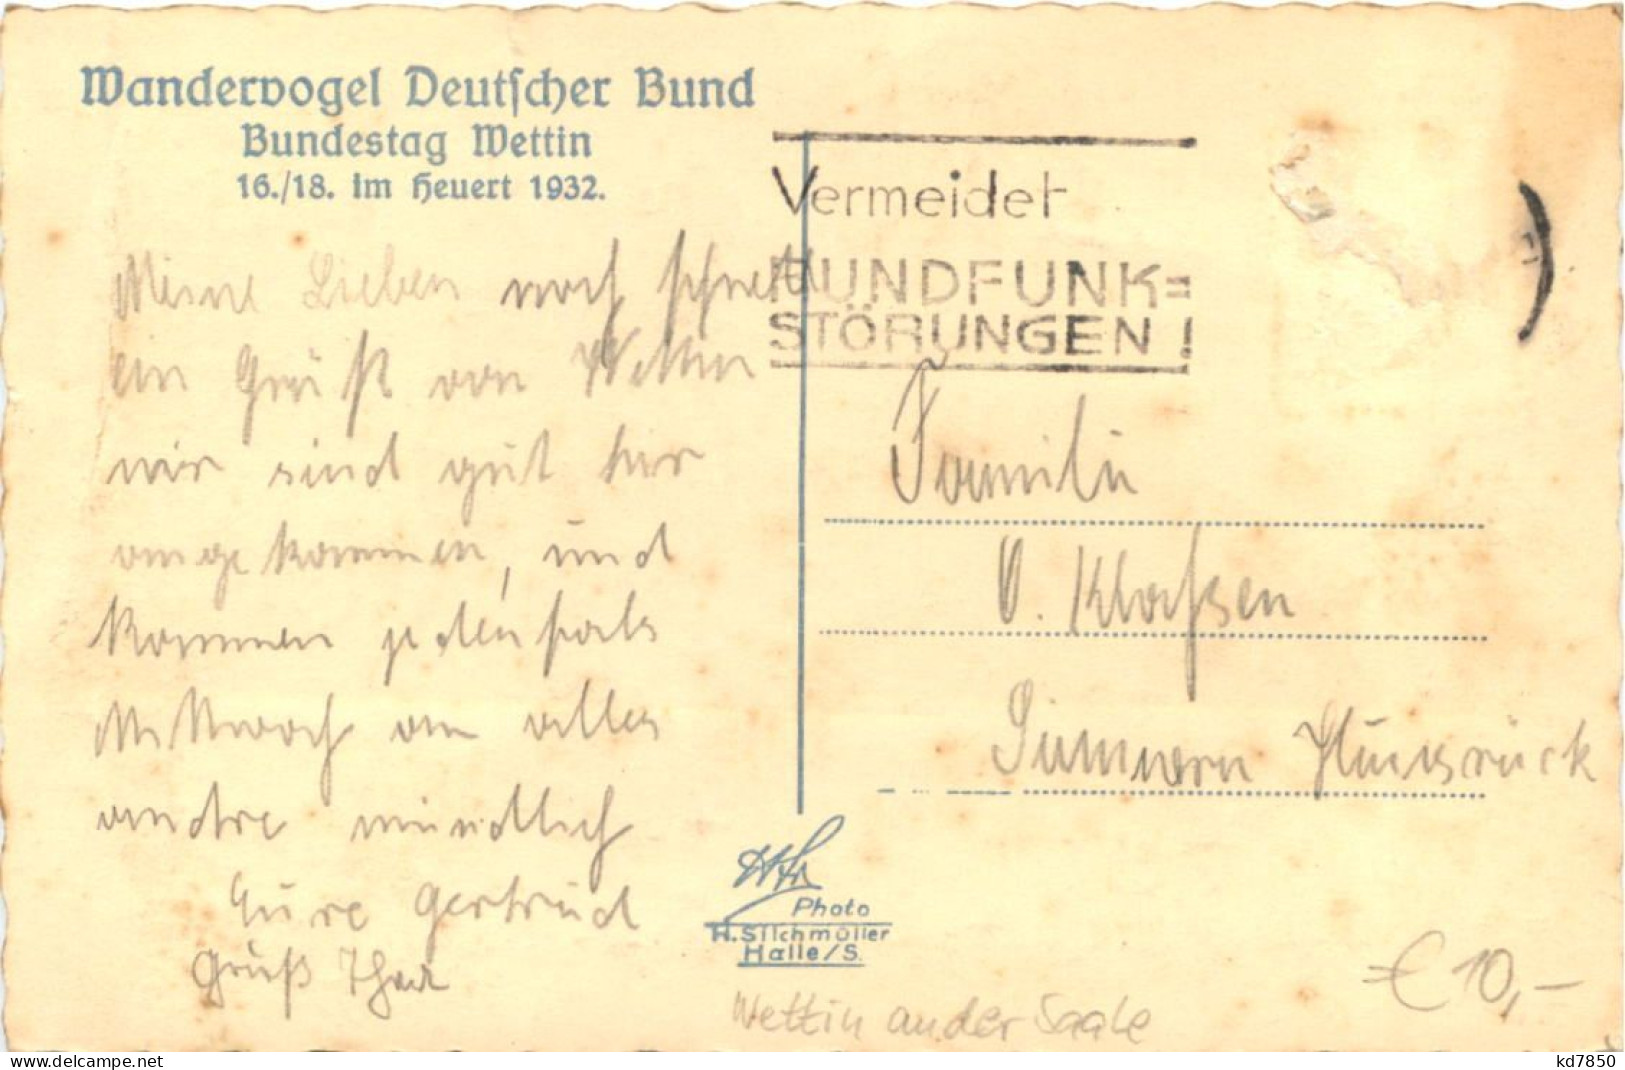 Wandervogel Deutscher Bund
Bundestag Wettin
16./18. im Heuert 1932.
Vermeidet
RUNDFUNK=
STÖRUNGEN!
Meine Lieben noch schnell
ein Gruß von Wettin
wir sind gut hier
angekommen, und
kommen jedenfals
Mittwoch an alles
andre mündlich
Eure Gertrud
Gruß
Familie
O. Klaßen
Simmern Hunsrück
Photo
H. Silchmüller
Halle/S.
Wettin an der Saale
€ 10,-
delcampe.net
kd7850